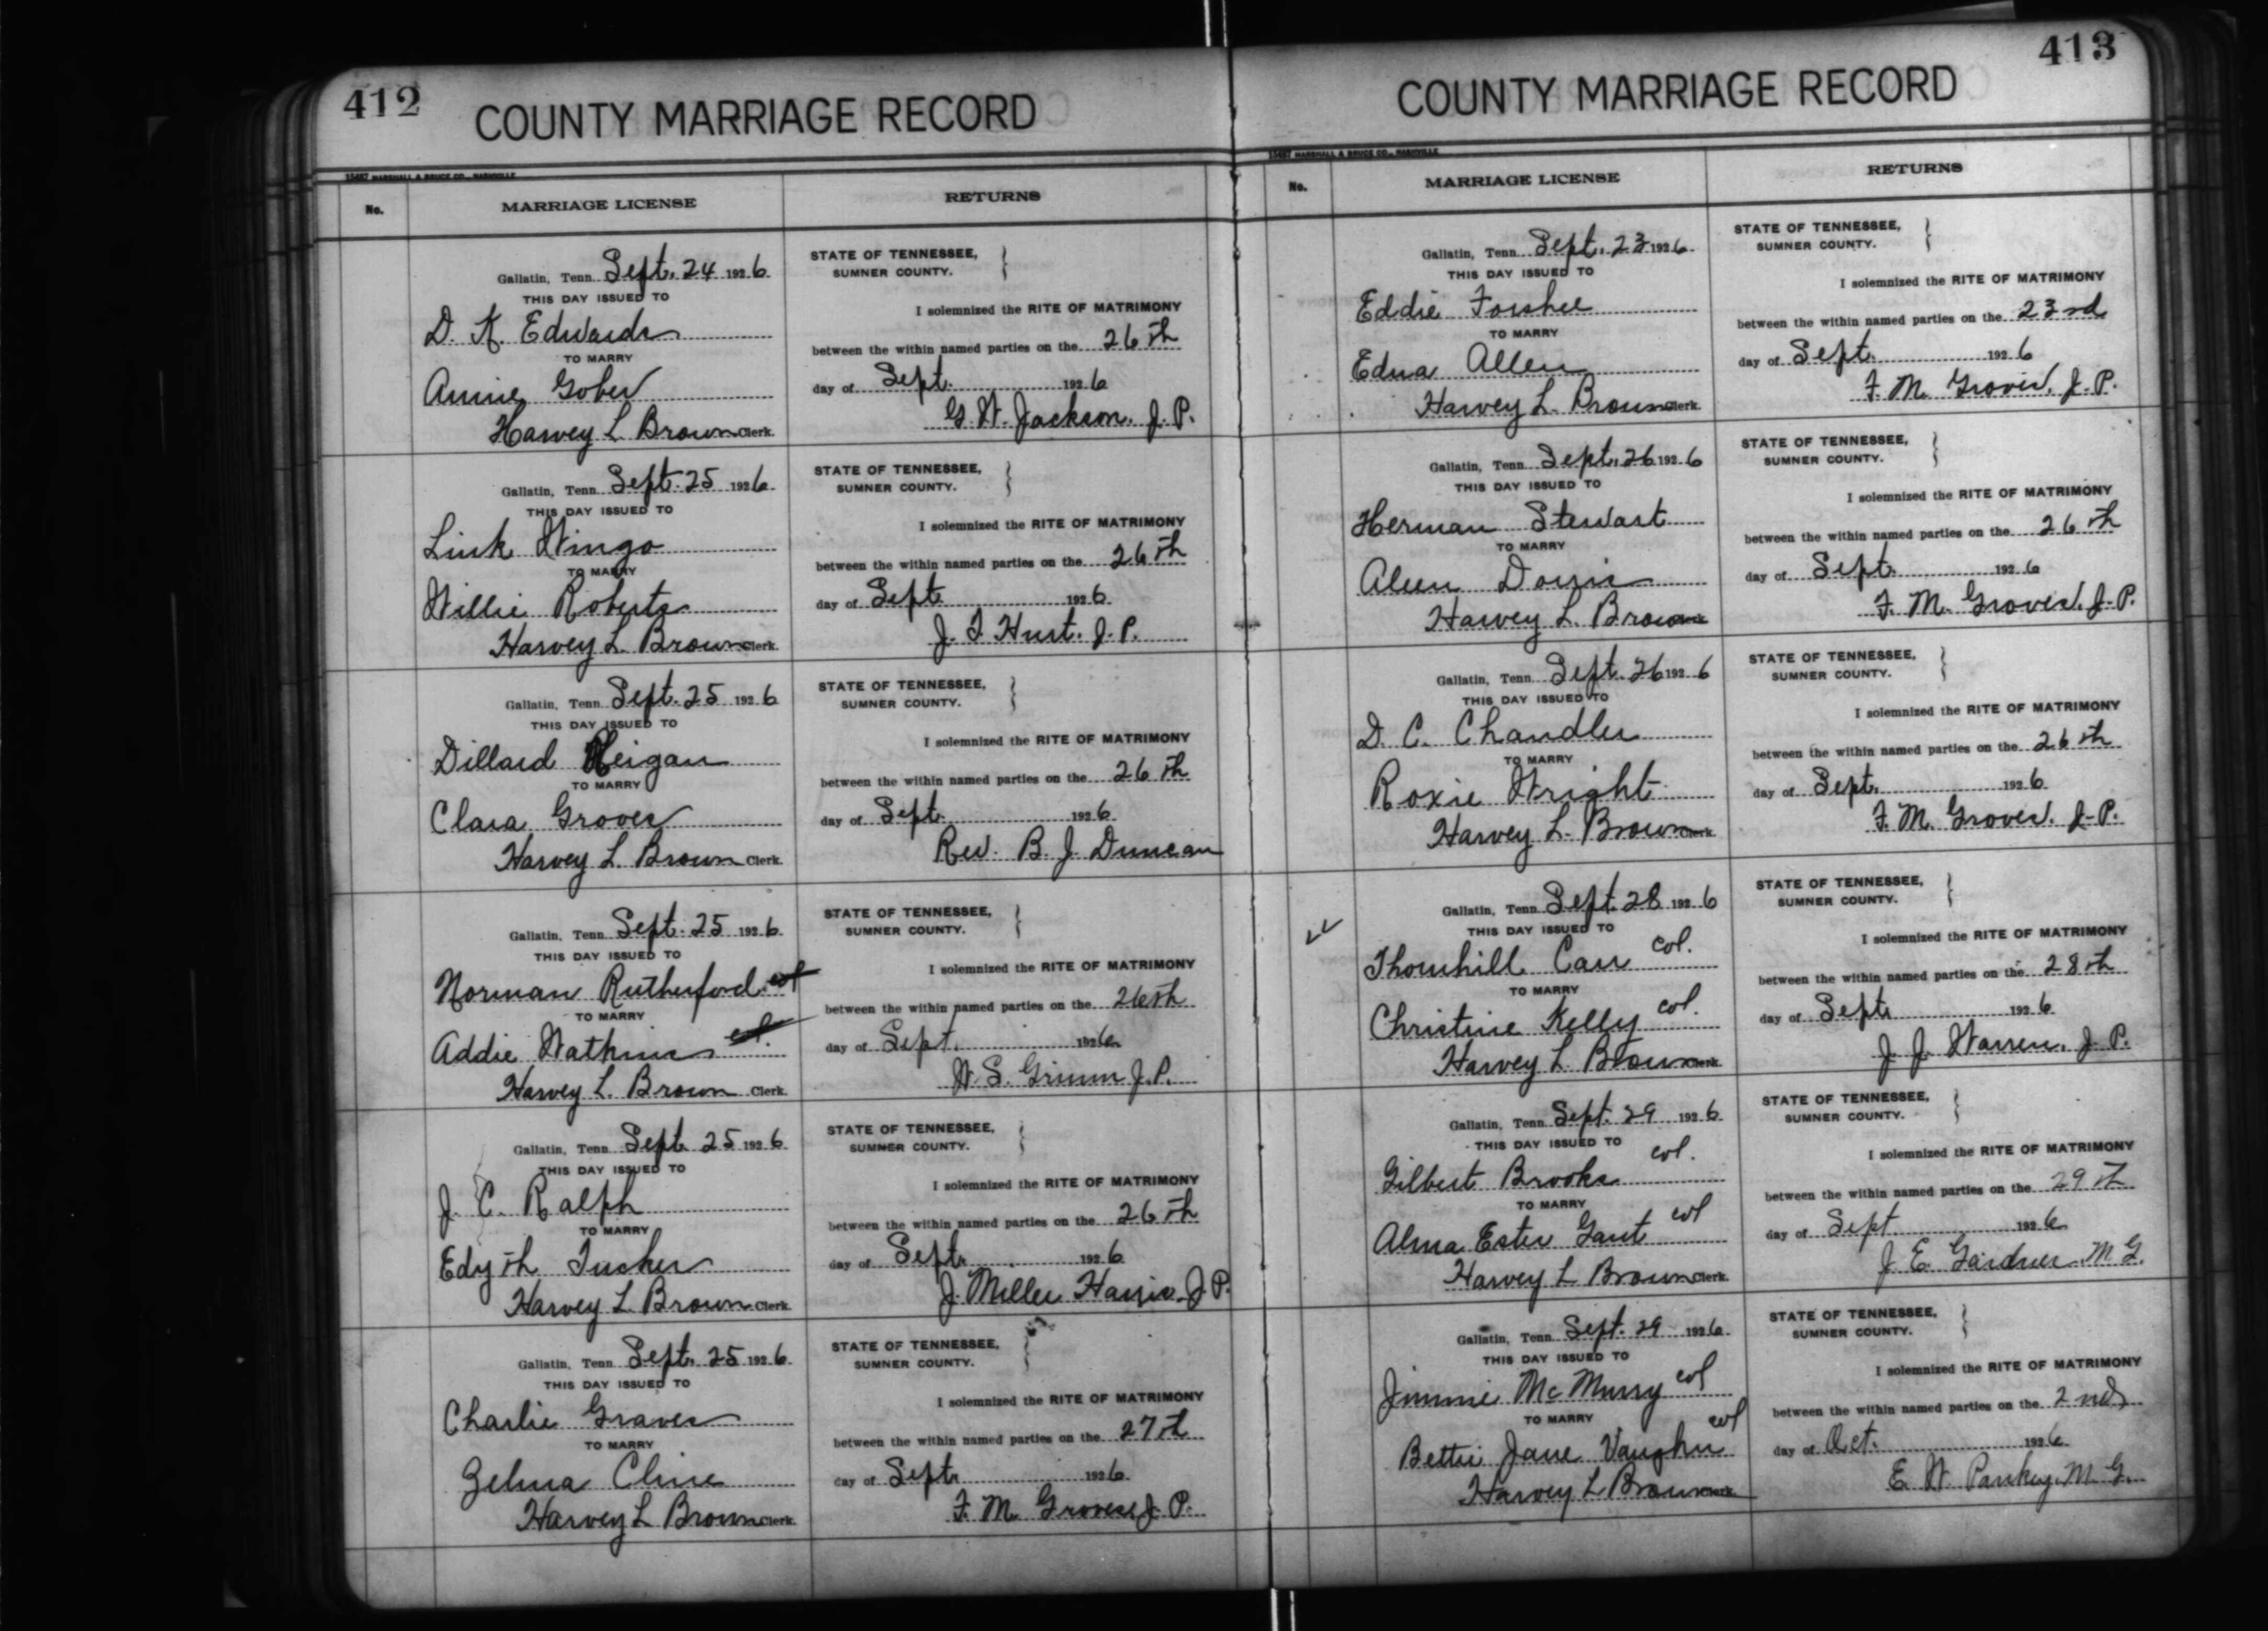 412
COUNTY MARRIAGE RECORD
15467 MARSHALL & BRUCE CO., NASHVILLE
No. MARRIAGE LICENSE RETURNS
Gallatin, Tenn. Sept. 24 1926
THIS DAY ISSUED TO
D. K. Edwards
TO MARRY
Annie Gober
Harvey L Brown Clerk.
STATE OF TENNESSEE,
SUMNER COUNTY.
I solemnized the RITE OF MATRIMONY
between the within named parties on the 26th
day of Sept. 1926
G. W. Jackson. J. P.
Gallatin, Tenn. Sept. 25 1926
THIS DAY ISSUED TO
Link Wingo
TO MARRY
Willie Roberts
Harvey L. Brown Clerk.
STATE OF TENNESSEE,
SUMNER COUNTY.
I solemnized the RITE OF MATRIMONY
between the within named parties on the 26th
day of Sept 1926
J. T. Hurt. J. P.
Gallatin, Tenn. Sept. 25 1926
THIS DAY ISSUED TO
Dillard Heigan
TO MARRY
Clara Groves
Harvey L. Brown Clerk.
STATE OF TENNESSEE,
SUMNER COUNTY.
I solemnized the RITE OF MATRIMONY
between the within named parties on the 26th
day of Sept. 1926
Rev. B. J. Duncan
Gallatin, Tenn. Sept. 25 1926
THIS DAY ISSUED TO
Norman Rutherford col
TO MARRY
Addie Watkins col.
Harvey L. Brown Clerk.
STATE OF TENNESSEE,
SUMNER COUNTY.
I solemnized the RITE OF MATRIMONY
between the within named parties on the 26th
day of Sept. 1926
W. S. Grimm J. P.
Gallatin, Tenn. Sept. 25 1926
THIS DAY ISSUED TO
J. C. Ralph
TO MARRY
Edyth Tucker
Harvey L. Brown Clerk.
STATE OF TENNESSEE,
SUMNER COUNTY.
I solemnized the RITE OF MATRIMONY
between the within named parties on the 26th
day of Sept. 1926
J. Miller Harris. J P.
Gallatin, Tenn. Sept. 25 1926
THIS DAY ISSUED TO
Charlie Graves
TO MARRY
Zelma Cline
Harvey L Brown Clerk.
STATE OF TENNESSEE,
SUMNER COUNTY.
I solemnized the RITE OF MATRIMONY
between the within named parties on the 27th
day of Sept. 1926
F. M. Groves J. P.
413
COUNTY MARRIAGE RECORD
15467 MARSHALL & BRUCE CO., NASHVILLE
No. MARRIAGE LICENSE RETURNS
Gallatin, Tenn. Sept. 23 1926
THIS DAY ISSUED TO
Eddie Forshee
TO MARRY
Edna Allen
Harvey L. Brown Clerk.
STATE OF TENNESSEE,
SUMNER COUNTY.
I solemnized the RITE OF MATRIMONY
between the within named parties on the 23rd
day of Sept. 1926
F. M. Groves. J. P.
Gallatin, Tenn. Sept. 26 1926
THIS DAY ISSUED TO
Herman Stewart
TO MARRY
Aleen Dorris
Harvey L. Brown
STATE OF TENNESSEE,
SUMNER COUNTY.
I solemnized the RITE OF MATRIMONY
between the within named parties on the 26th
day of Sept. 1926
F. M. Groves. J. P.
Gallatin, Tenn. Sept. 26 1926
THIS DAY ISSUED TO
D. C. Chandler
TO MARRY
Roxie Wright
Harvey L. Brown Clerk.
STATE OF TENNESSEE,
SUMNER COUNTY.
I solemnized the RITE OF MATRIMONY
between the within named parties on the 26th
day of Sept. 1926
F. M. Groves. J. P.
Gallatin, Tenn. Sept. 28 1926
THIS DAY ISSUED TO
Thornhill Carr col.
TO MARRY
Christine Kelly col.
Harvey L. Brown Clerk.
STATE OF TENNESSEE,
SUMNER COUNTY.
I solemnized the RITE OF MATRIMONY
between the within named parties on the 28th
day of Sept. 1926
J. J. Warren. J. P.
Gallatin, Tenn. Sept. 29 1926
THIS DAY ISSUED TO
Gilbert Brooks col.
TO MARRY
Alma Ester Gant col
Harvey L Brown Clerk.
STATE OF TENNESSEE,
SUMNER COUNTY.
I solemnized the RITE OF MATRIMONY
between the within named parties on the 29th
day of Sept 1926
J. E. Gardner M. G.
Gallatin, Tenn. Sept. 29 1926
THIS DAY ISSUED TO
Jimmie McMurry col
TO MARRY
Bettie Jane Vaughn col
Harvey L Brown Clerk
STATE OF TENNESSEE,
SUMNER COUNTY.
I solemnized the RITE OF MATRIMONY
between the within named parties on the 2nd
day of Oct. 1926
E. W. Pankey. M. G.